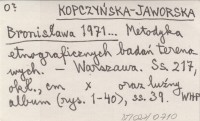 0?
KOPCZYŃSKA-JAWORSKA
Bronisława 1971... Metodyka
etnograficznych badań tereno
wych. - Warszawa. Ss. 217,
okł., cm x oraz luźny
album (rys. 1-40), ss. 39. WHP